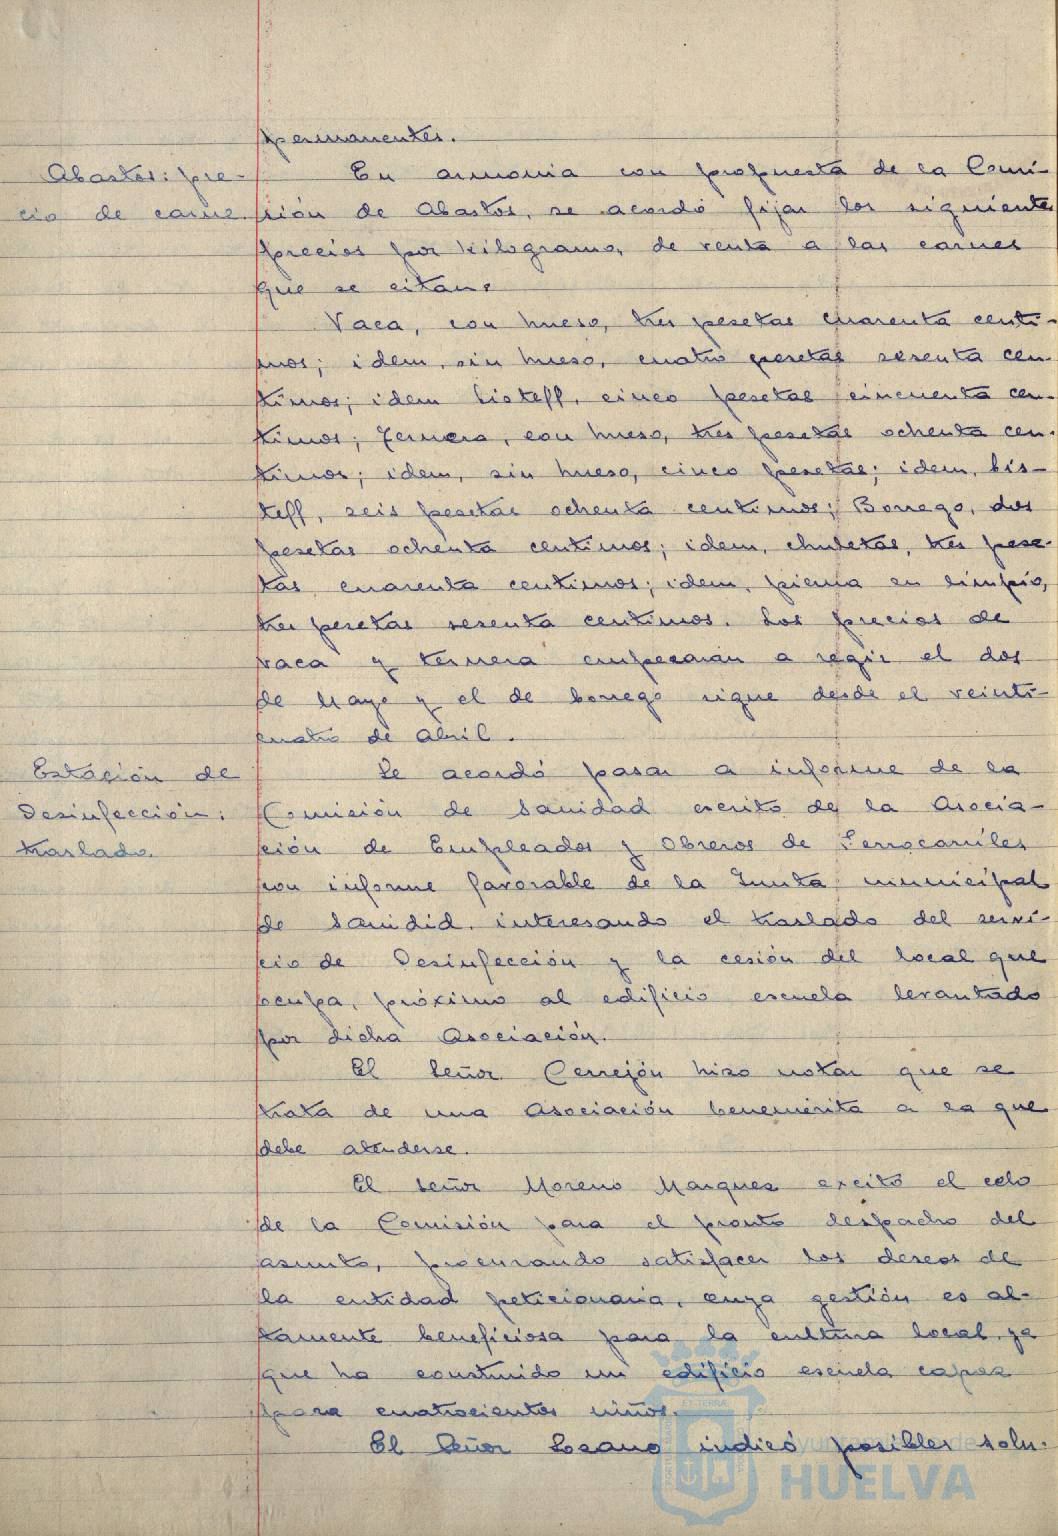 permanentes.
Abastos: pre-
cio de carne.
En armonia con propuesta de la Comi-
sión de Abastos, se acordó fijar los siguientes
precios por kilogramo, de venta a las carnes
que se citan:
Vaca, con hueso, tres pesetas cuarenta centi-
mos; idem, sin hueso, cuatro pesetas sesenta cen-
timos; idem bisteff, cinco pesetas cincuenta cen-
timos; Ternera, con hueso, tres pesetas ochenta cen-
timos; idem, sin hueso, cinco pesetas; idem, bis-
teff, seis pesetas ochenta centimos; Borrego, dos
pesetas ochenta centimos; idem, chuletas, tres pese-
tas cuarenta centimos; idem, pierna en limpio,
tres pesetas sesenta centimos. Los precios de
vaca y ternera empezarán a regir el dos
de Mayo y el de borrego sigue desde el veinti-
cuatro de Abril.
Estación de
Desinfección:
traslado.
Se acordó pasar a informe de la
Comisión de Sanidad escrito de la Asocia-
ción de Empleados y Obreros de Ferrocarriles
con informe favorable de la Junta municipal
de Sanidid, interesando el traslado del servi-
cio de Desinfección y la cesión del local que
ocupa, próximo al edificio escuela levantado
por dicha Asociación.
El Señor Cerrejón hizo notar que se
trata de una Asociación benemérita a la que
debe atenderse.
El Señor Moreno Marquez excitó el celo
de la Comisión para el pronto despacho del
asunto, procurando satisfacer los deseos de
la entidad peticionaria, cuya gestión es al-
tamente beneficiosa para la cultura local, ya
que ha construido un edificio escuela capaz
para cuatrocientos niños.
El Señor Lozano indicó posibles solu-
Ayuntamiento de
HUELVA